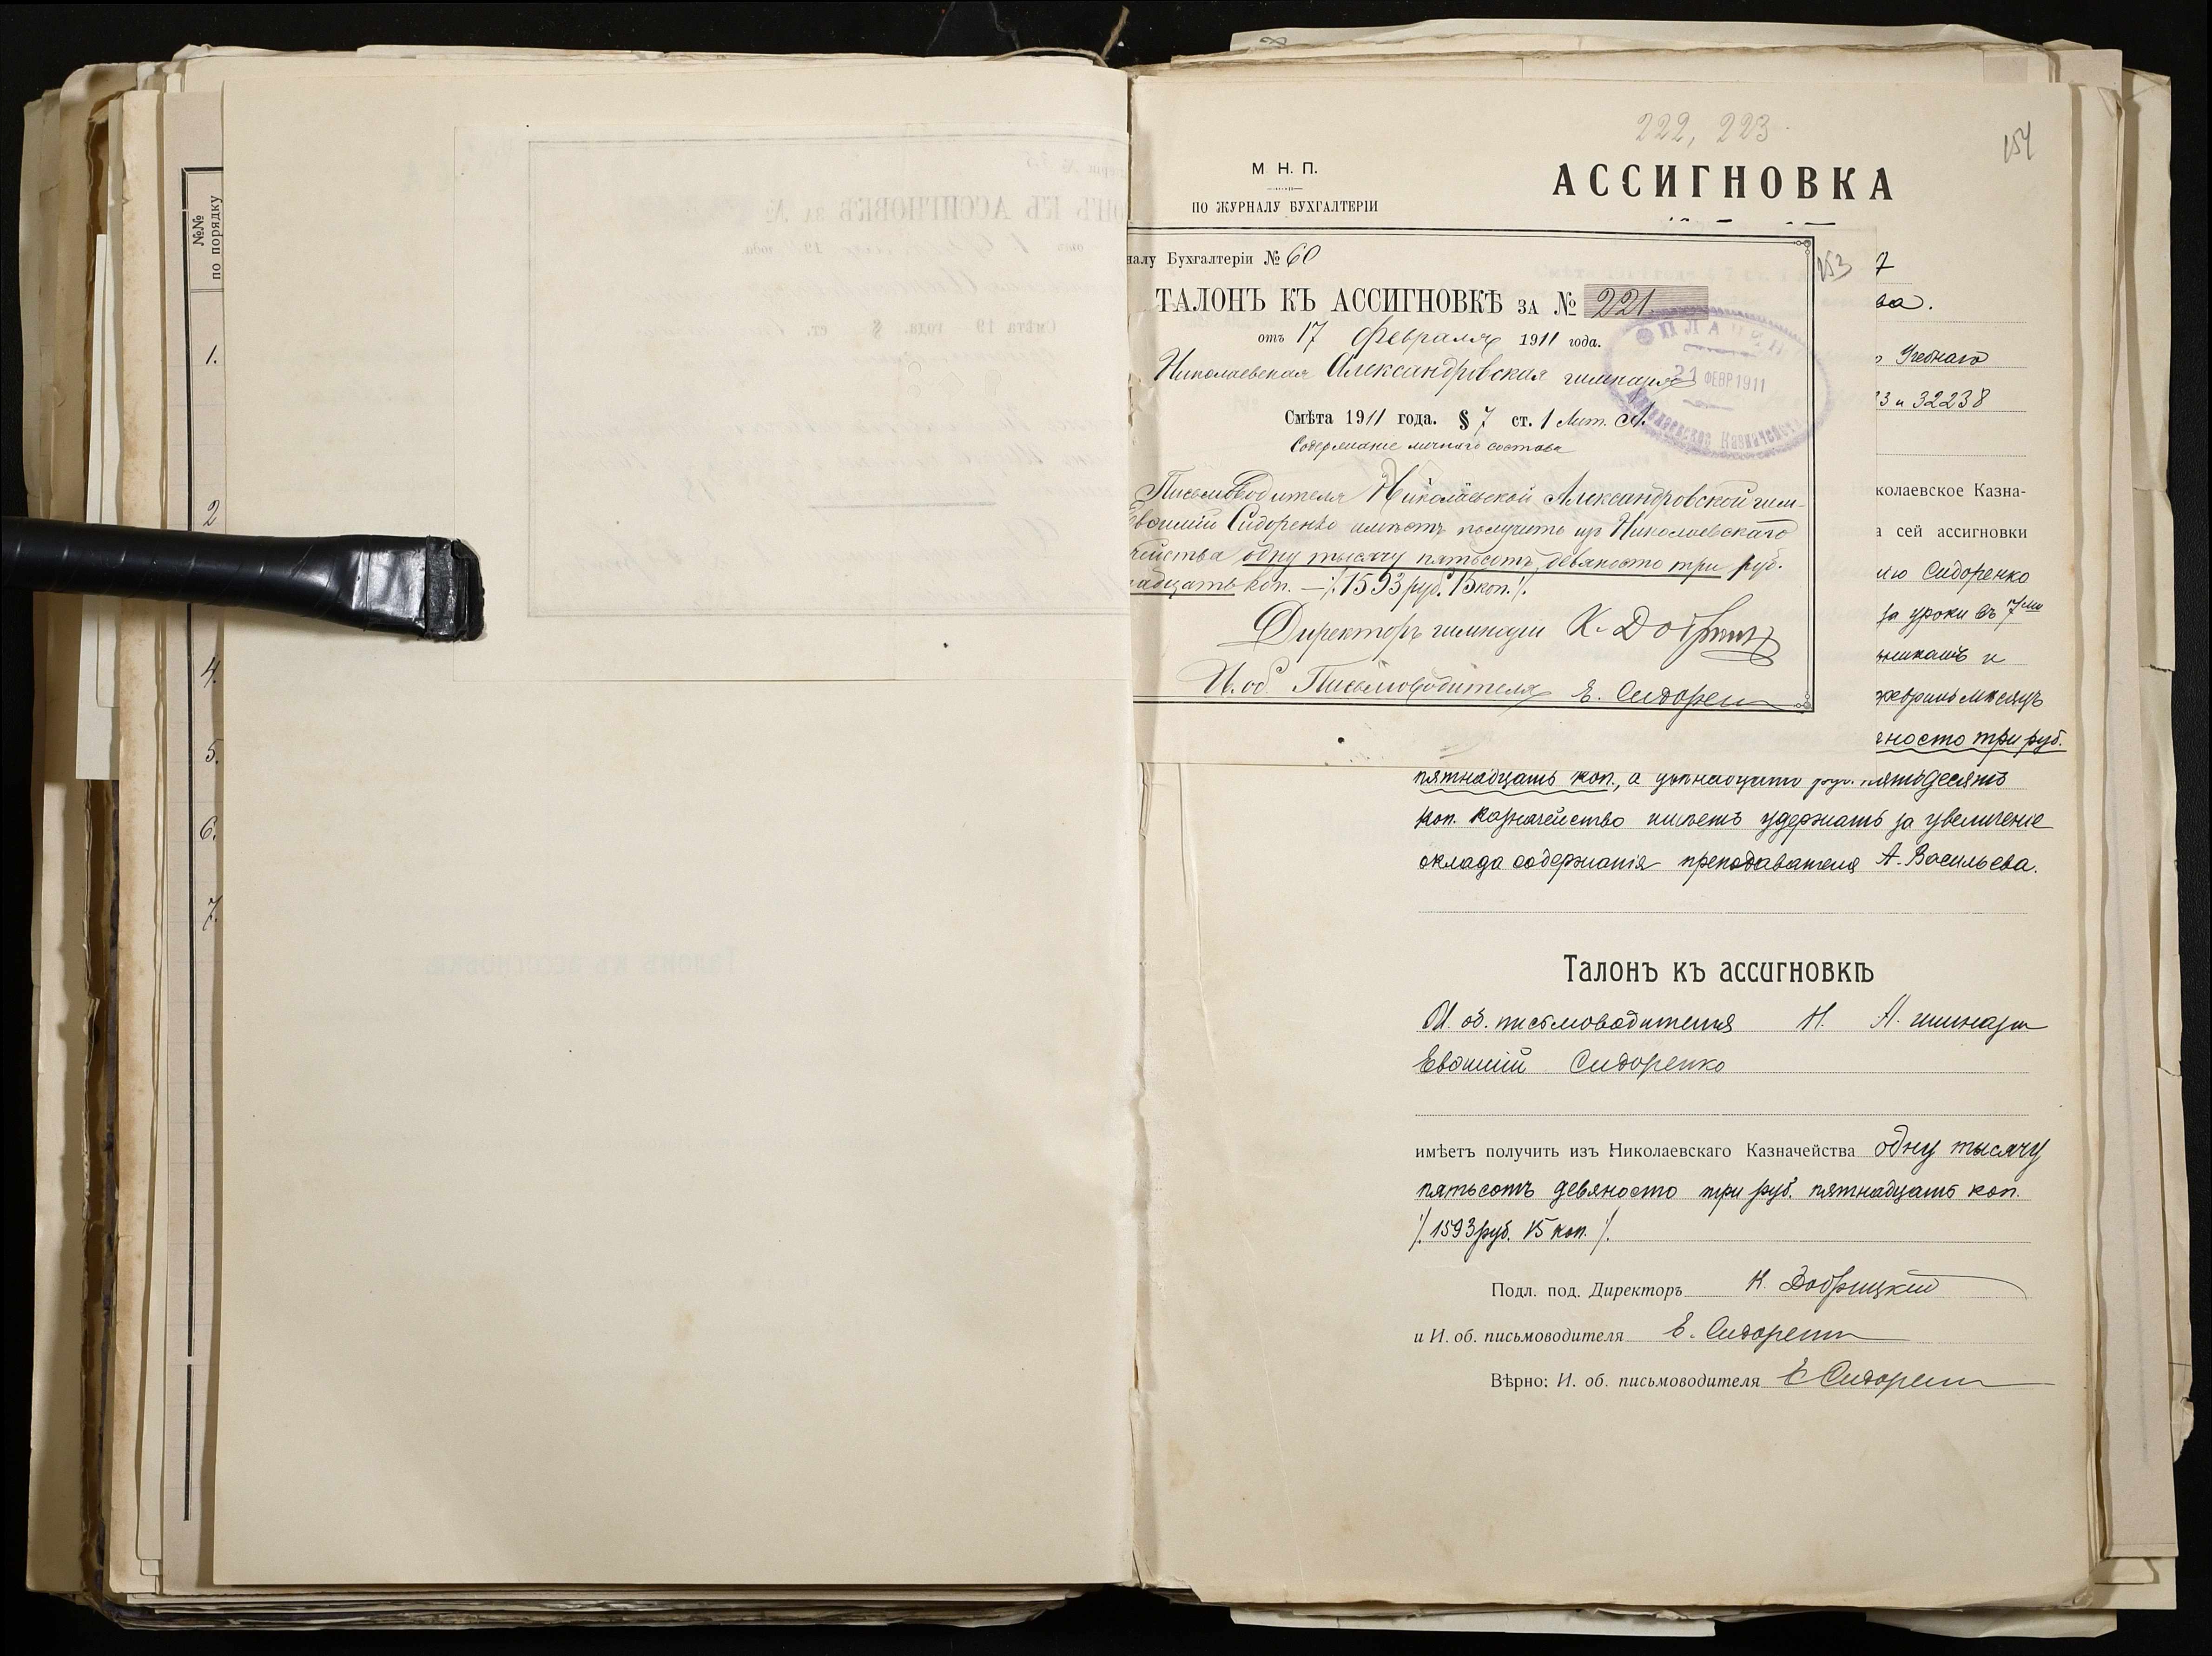 №№
по порядку
1.
2
4.
5.
6.
7.
222, 223
154
М. Н. П.
ПО ЖУРНАЛУ БУХГАЛТЕРІИ
АССИГНОВКА
налу Бухгалтеріи № 60
153
ТАЛОНЪ КЪ АССИГНОВКѢ за № 221
отъ 17 Февраля 1911 года.
Николаевская Александровская гимназія
ОПЛАЧЕН
21 ФЕВР 1911
Николаевское Казначейство
Смѣта 1911 года. § 7 ст. 1 Лит. А.
Содержаніе личнаго состава
Письмоводителя Николаевской Александровской гим-
Евѳимій Сидоренко имѣетъ получить изъ Николаевскаго
чейства одну тысячу пятьсотъ девяносто три руб.
надцать коп. — /.1593 руб. 15 коп./.
Директоръ гимназіи
И. об. Письмоводителя Е. Сидорен
7
ва.
Учебнаго
23 и 32238
колаевское Казна-
а сей ассигновки
ію Сидоренко
за уроки въ 7ми
никамъ и
февраль мѣсяцъ
яносто три руб.
пятнадцать коп., а пятьдесятъ
коп. Казначейство имѣетъ удержать за увеличеніе
оклада содержанія преподавателя А. Васильева.
Талонъ къ ассигновкѣ
И. об. письмоводителя Н. А. гимназіи
Евѳимій Сидоренко
имѣетъ получить изъ Николаевскаго Казначейства одну тысячу
пятьсотъ девяносто три руб. пятнадцать коп.
/. 1593 руб. 15 коп. /.
Подл. под. Директоръ К. Добрицкій
и И. об. письмоводителя Е. Сидоренко
Вѣрно: И. об. письмоводителя Е Сидоренко